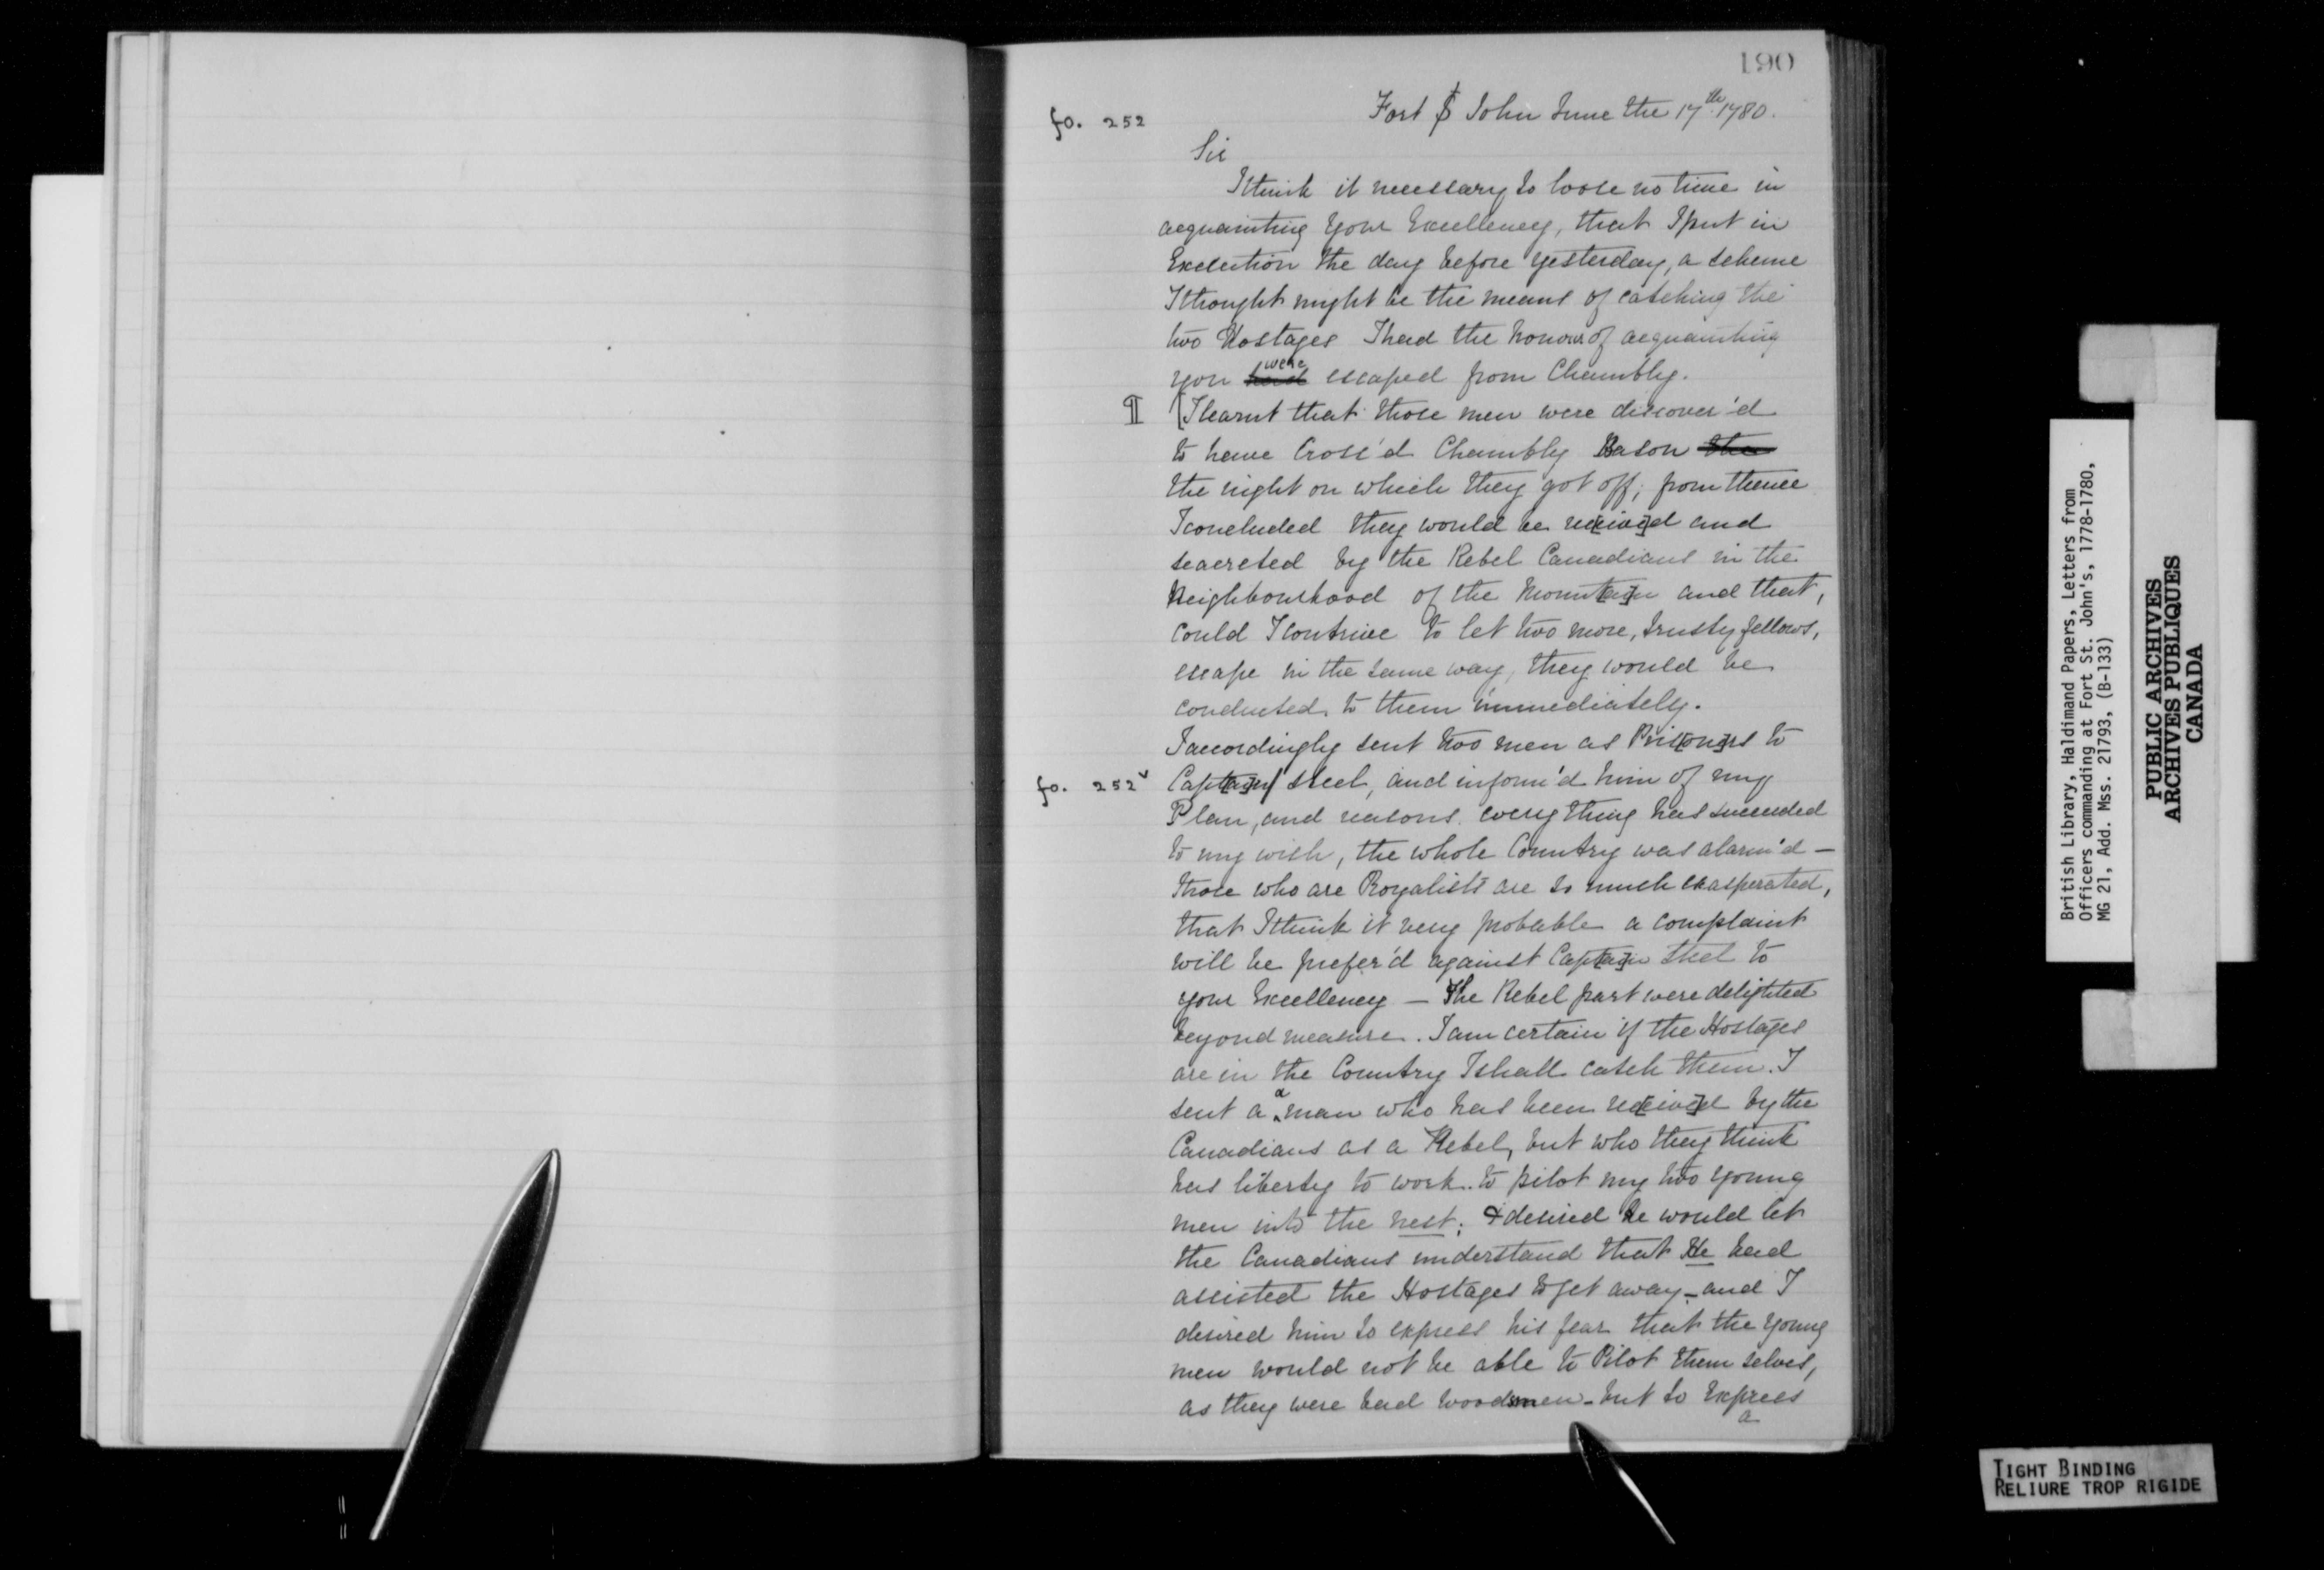 190
fo. 252
Fort St John June the 17th 1780.
Sir
I think it necessary to loose no time in
acquainting Your Excellency, that I put in
Execution the day before yesterday, a scheme
I thought might be the means of catching the
two Hostages I had the honour of acquainting
you had were escaped from Chambly.
¶ [I learnt that those men were discover'd
to have Cross'd Chambly Bason the
the night on which they got off; from thence
I concluded they would be rec[eive]d and
seacreted by the Rebel Canadians in the
Neighbourhood of the Mount[ai]n and that,
could I contrive to let two more, trusty fellows,
escape in the same way, they would be
conducted to them immediately.
I accordingly sent two men as Pris[one]rs to
fo. 252v
Capt[ai]n/ Steel, and inform'd him of my
Plan, and reasons. every thing has succeeded
to my wish, the whole Country was alarm'd —
Those who are Royalists are so much exasperated,
that I think it very probable a complaint
will be prefer'd against Capt[ai]n Steel to
your Excellency — The Rebel part were delighted
beyond measure. I am certain if the Hostages
are in the Country I shall catch them. I
sent a a man who has been rec[eive]d by the
Canadians as a Rebel, but who they think
has liberty to work. to pilot my two young
men into the nest; & desired he would let
the Canadians understand that He had
assisted the Hostages to get away - and I
desired him to express his fear that the young
men would not be able to Pilot them selves,
as they were bad woodsmen - but to Express
a
British Library, Haldimand Papers, Letters from
Officers commanding at Fort St. John's, 1778-1780,
MG 21, Add. Mss. 21793, (B-133)
PUBLIC ARCHIVES
ARCHIVES PUBLIQUES
CANADA
TIGHT BINDING
RELIURE TROP RIGIDE